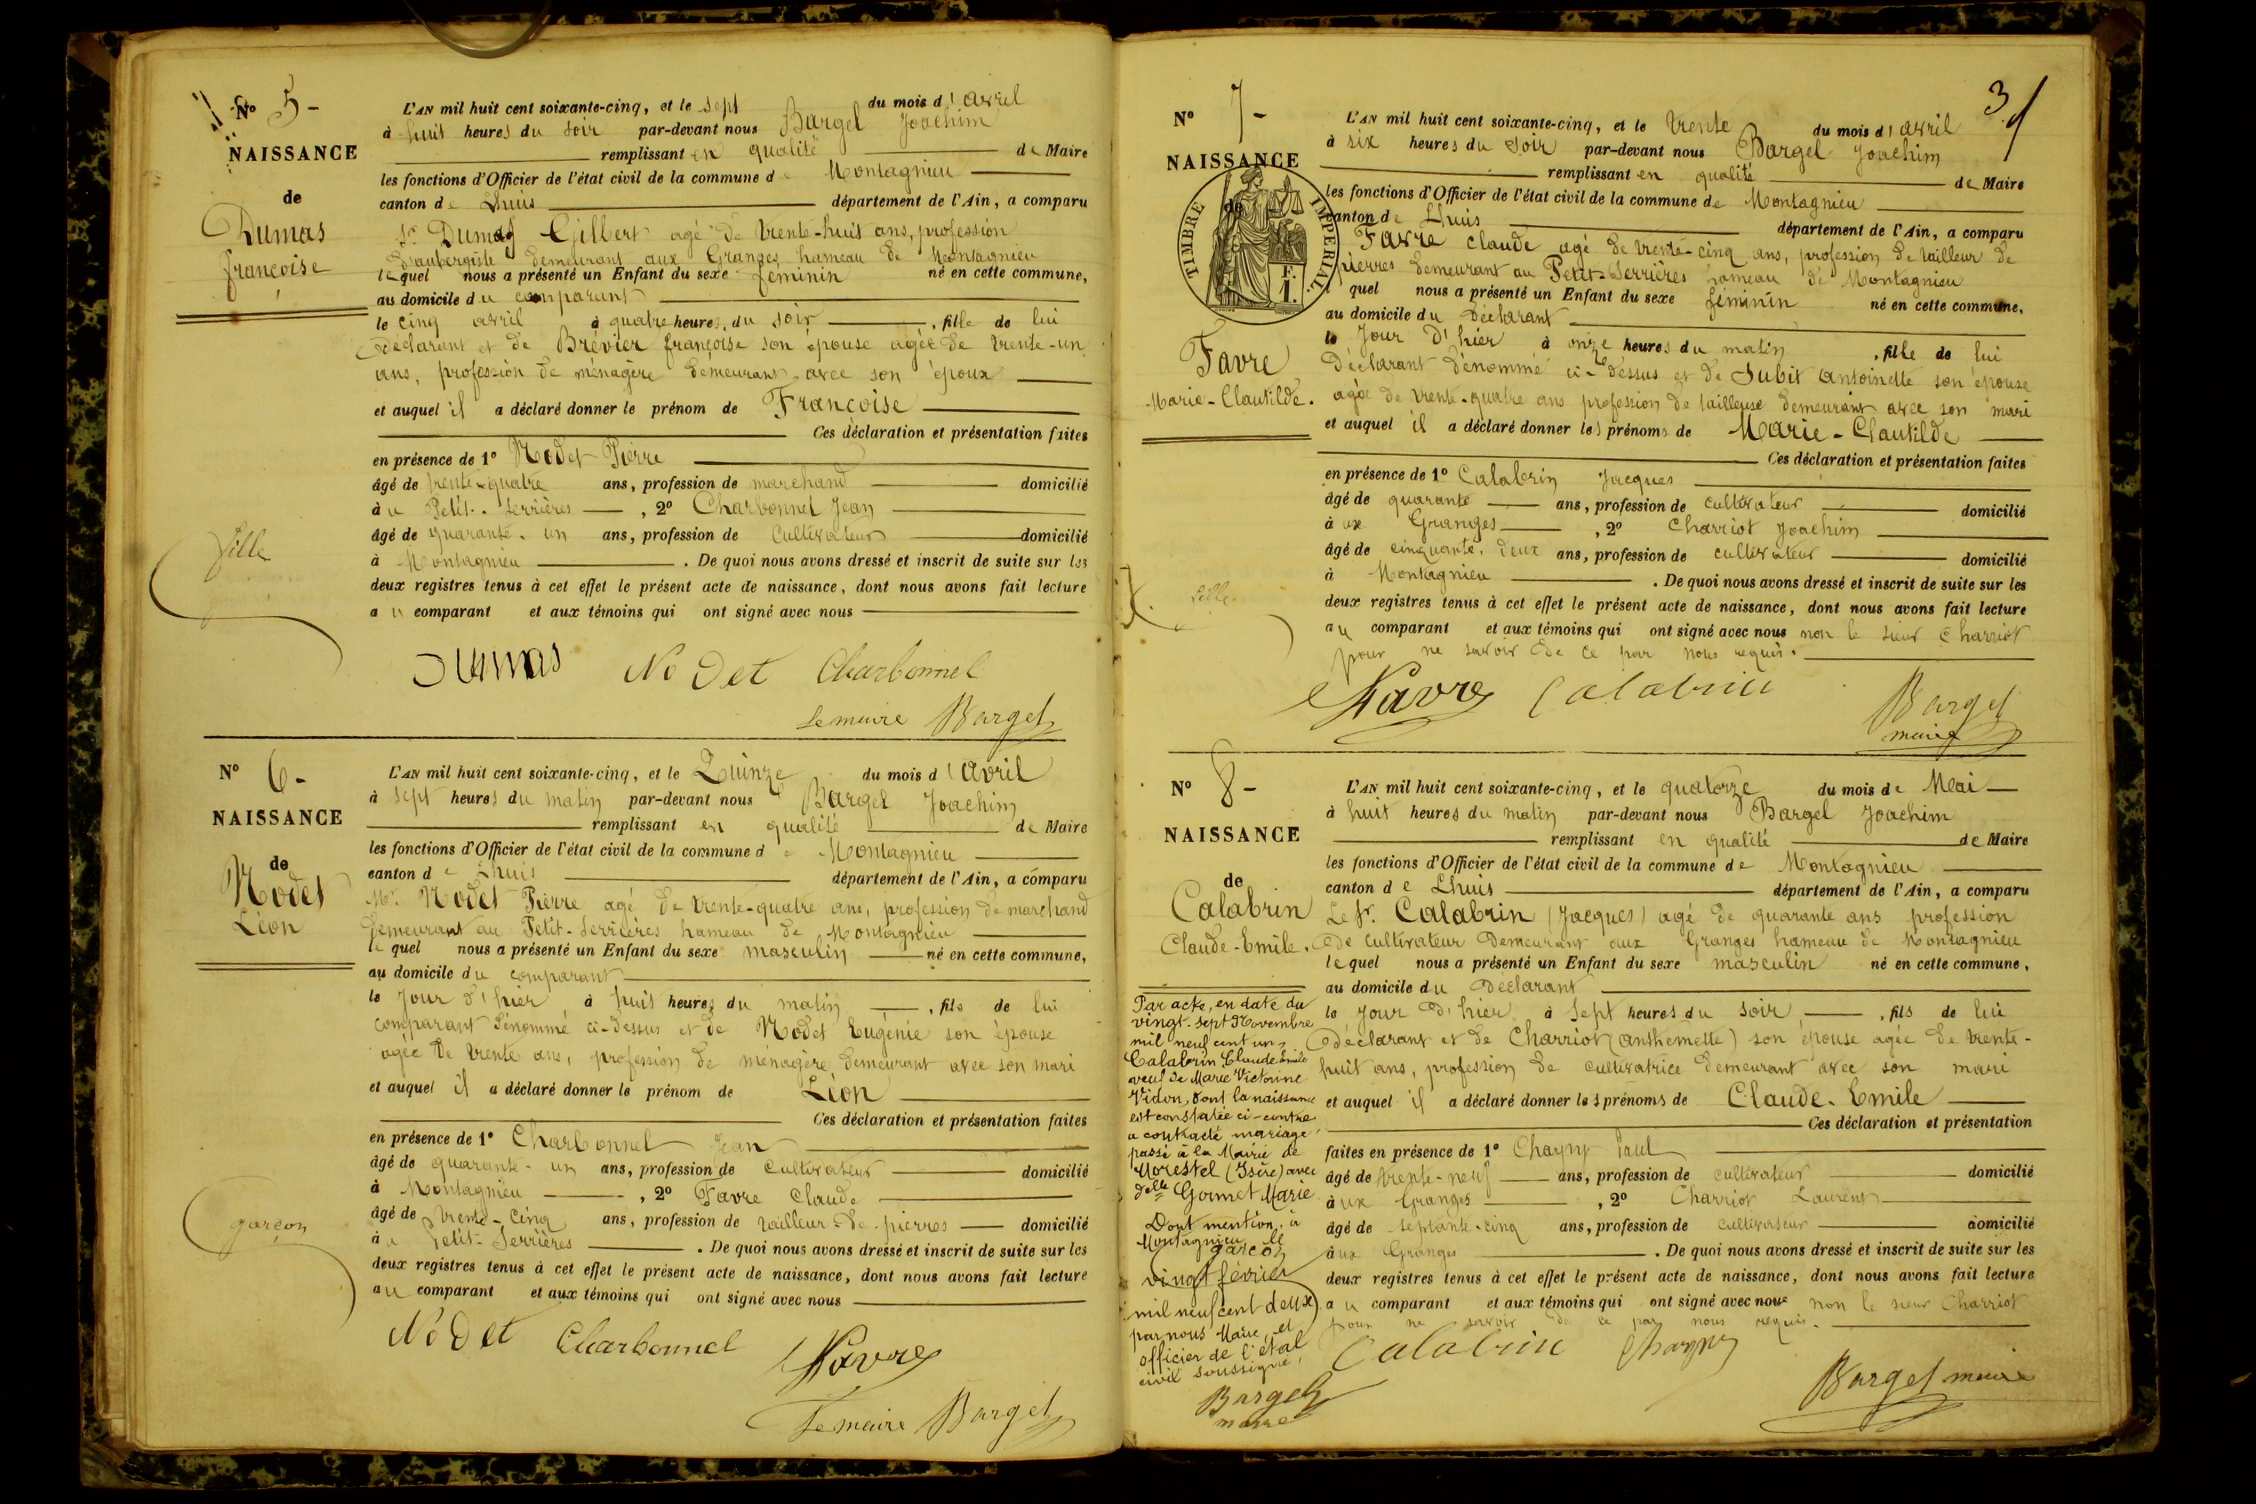 N° 5 -
NAISSANCE
de
Dumas
françoise
fille
L'AN mil huit cent soixante-cinq, et le sept du mois d'avril
à huit heures du soir par-devant nous Bargel Joachim
remplissant en qualité de Maire
les fonctions d'Officier de l'état civil de la commune de Montagnieu
canton de Lhuis département de l'Ain, a comparu
Sr. Dumas Gilbert agé de trente-huit ans, profession
d'aubergiste demeurant aux Granges hameau de Montagnieu
lequel nous a présenté un Enfant du sexe féminin né en cette commune,
au domicile du comparant
le cinq avril à quatre heures du soir, fille de lui
déclarant et de Brévier françoise son épouse agée de trente-un
ans, profession de ménagère demeurant avec son époux
et auquel il a déclaré donner le prénom de Françoise
Ces déclaration et présentation faites
en présence de 1° Nodet Pierre
âgé de trente-quatre ans, profession de marchand domicilié
au Petit-Serrières, 2° Charbonnel Jean
âgé de quarante-un ans, profession de Cultivateur domicilié
à Montagnieu. De quoi nous avons dressé et inscrit de suite sur les
deux registres tenus à cet effet le présent acte de naissance, dont nous avons fait lecture
au comparant et aux témoins qui ont signé avec nous
Dumas Nodet Charbonnel
Le maire Bargel
N° 6 -
NAISSANCE
de
Nodet
Léon
garçon
L'AN mil huit cent soixante-cinq, et le Quinze du mois d'avril
à sept heures du matin par-devant nous Bargel Joachim
remplissant en qualité de Maire
les fonctions d'Officier de l'état civil de la commune de Montagnieu
canton de Lhuis département de l'Ain, a comparu
Mr. Nodet Pierre agé de trente-quatre ans, profession de marchand
demeurant au Petit-Serrières hameau de Montagnieu
lequel nous a présenté un Enfant du sexe masculin né en cette commune,
au domicile du comparant
le Jour d'hier à huit heures du matin, fils de lui
comparant dénommé ci-dessus et de Nodet Eugénie son épouse
agée de trente ans, profession de ménagère demeurant avec son mari
et auquel il a déclaré donner le prénom de Léon
Ces déclaration et présentation faites
en présence de 1° Charbonnel Jean
âgé de quarante-un ans, profession de Cultivateur domicilié
à Montagnieu, 2° Favre Claude
âgé de trente-cinq ans, profession de tailleur de pierres domicilié
au Petit-Serrières. De quoi nous avons dressé et inscrit de suite sur les
deux registres tenus à cet effet le présent acte de naissance, dont nous avons fait lecture
au comparant et aux témoins qui ont signé avec nous
Nodet Charbonnel Favre
Le maire Bargel
3
N° 7 -
NAISSANCE
de
TIMBRE IMPERIAL
F.
1.
Favre
Marie-Clautilde.
fille
L'AN mil huit cent soixante-cinq, et le trente du mois d'avril
à six heures du soir par-devant nous Bargel Joachim
remplissant en qualité de Maire
les fonctions d'Officier de l'état civil de la commune de Montagnieu
canton de Lhuis département de l'Ain, a comparu
Favre claude agé de trente-cinq ans, profession de tailleur de
pierres demeurant au Petit-Serrières hameau de Montagnieu
quel nous a présenté un Enfant du sexe féminin né en cette commune,
au domicile du déclarant
le Jour d'hier à onze heures du matin, fille de lui
Déclarant dénommé ci-dessus et de Subit antoinette son épouse
agée de trente-quatre ans profession de tailleuse demeurant avec son mari
et auquel il a déclaré donner les prénoms de Marie-Clautilde
Ces déclaration et présentation faites
en présence de 1° Calabrin Jacques
âgé de quarante ans, profession de cultivateur domicilié
aux Granges, 2° Charriot Joachim
âgé de cinquante-deux ans, profession de cultivateur domicilié
à Montagnieu. De quoi nous avons dressé et inscrit de suite sur les
deux registres tenus à cet effet le présent acte de naissance, dont nous avons fait lecture
au comparant et aux témoins qui ont signé avec nous non le sieur Charriot
pour ne savoir de ce par nous requis.
Favre Calabrin Bargel
maire
N° 8 -
NAISSANCE
de
Calabrin
Claude-Emile.
Par acte, en date du
vingt-sept Novembre
mil neuf cent un,
Calabrin Claude Emile
veuf de Marie Victorine
Vidon, dont la naissance
est constatée ci-contre
a contracté mariage
passé à la Mairie de
Morestel (Isère) avec
delle Gounet Marie
Dont mention, à
Montagnieu le
garçon
vingt février
mil neuf cent deux
par nous Maire et
officier de l'état
civil soussigné,
Bargel
maire
L'AN mil huit cent soixante-cinq, et le quatorze du mois de Mai
à huit heures du matin par-devant nous Bargel Joachim
remplissant en qualité de Maire
les fonctions d'Officier de l'état civil de la commune de Montagnieu
canton de Lhuis département de l'Ain, a comparu
Le Sr. Calabrin (Jacques) agé de quarante ans profession
de cultivateur Demeurant aux Granges hameau de Montagnieu
lequel nous a présenté un Enfant du sexe masculin né en cette commune,
au domicile du déclarant
le jour d'hier à sept heures du soir, fils de lui
déclarant et de Charriot (anthemette) son épouse agée de trente-
huit ans, profession de cultivatrice demeurant avec son mari
et auquel il a déclaré donner les prénoms de Claude-Emile
Ces déclaration et présentation
faites en présence de 1° Chagny Paul
âgé de trente-neuf ans, profession de cultivateur domicilié
aux Granges, 2° Charriot Laurent
âgé de septante-cinq ans, profession de cultivateur domicilié
aux Granges. De quoi nous avons dressé et inscrit de suite sur les
deux registres tenus à cet effet le présent acte de naissance, dont nous avons fait lecture
au comparant et aux témoins qui ont signé avec nous non le sieur Charriot
pour ne savoir de ce par nous requis.
Calabrin Chagny
Bargel maire